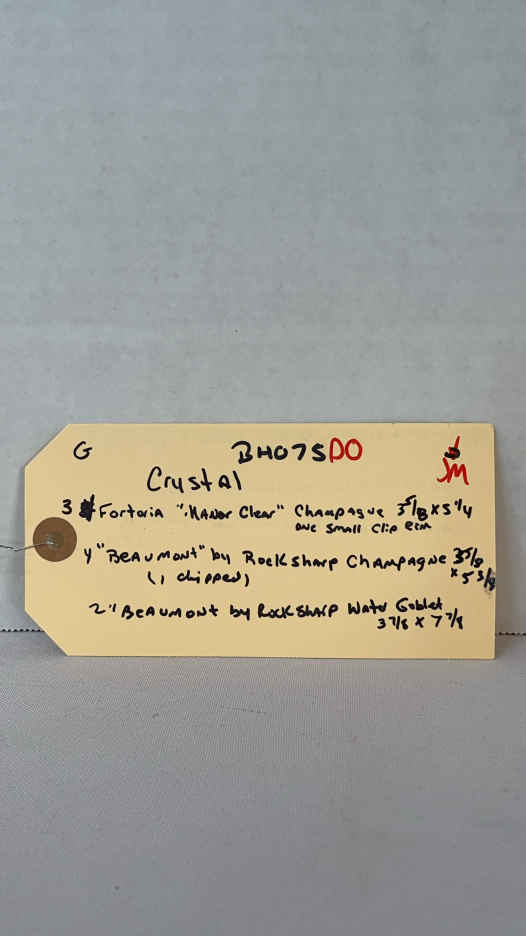 G BH075DO JM
Crystal
3 Fortoria "Manor Clear" Champagne 3 5/8 x 5 1/4
one small clip rim
4 "BEAUMONT" by Rocksharp Champagne 3 5/8
(1 chipped) x 5 3/8
2 "BEAUMONT by Rocksharp Water Goblet
3 7/8 x 7 7/8